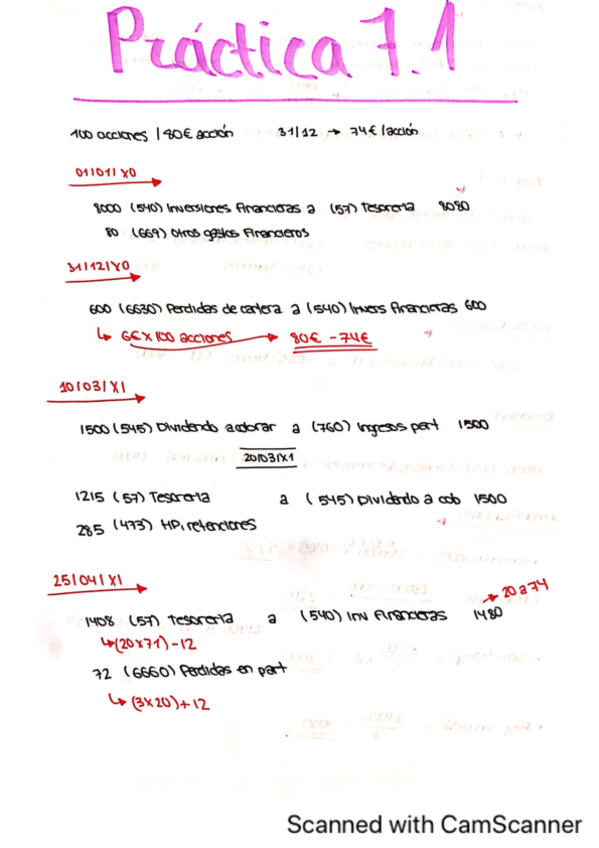 Práctica 7.1
100 acciones / 80€ acción 31/12 → 74€ /acción
01/01/X0
8000 (540) Inversiones financieras a (57) Tesorería 8080
80 (669) Otros gastos financieros
31/12/X0
600 (6630) Perdidas de cartera a (540) Invers financieras 600
↳ 6€ x 100 acciones → 80€ - 74€
10/03/X1
1500 (545) Dividendo a cobrar a (760) Ingresos part 1500
20/03/X1
1215 (57) Tesorería a (545) Dividendo a cob 1500
285 (473) HP, retenciones
25/04/X1
→ 20 a 74
1408 (57) Tesorería a (540) Inv financieras 1480
↳ (20x71) - 12
72 (6660) Perdidas en part
↳ (3x20) + 12
Scanned with CamScanner